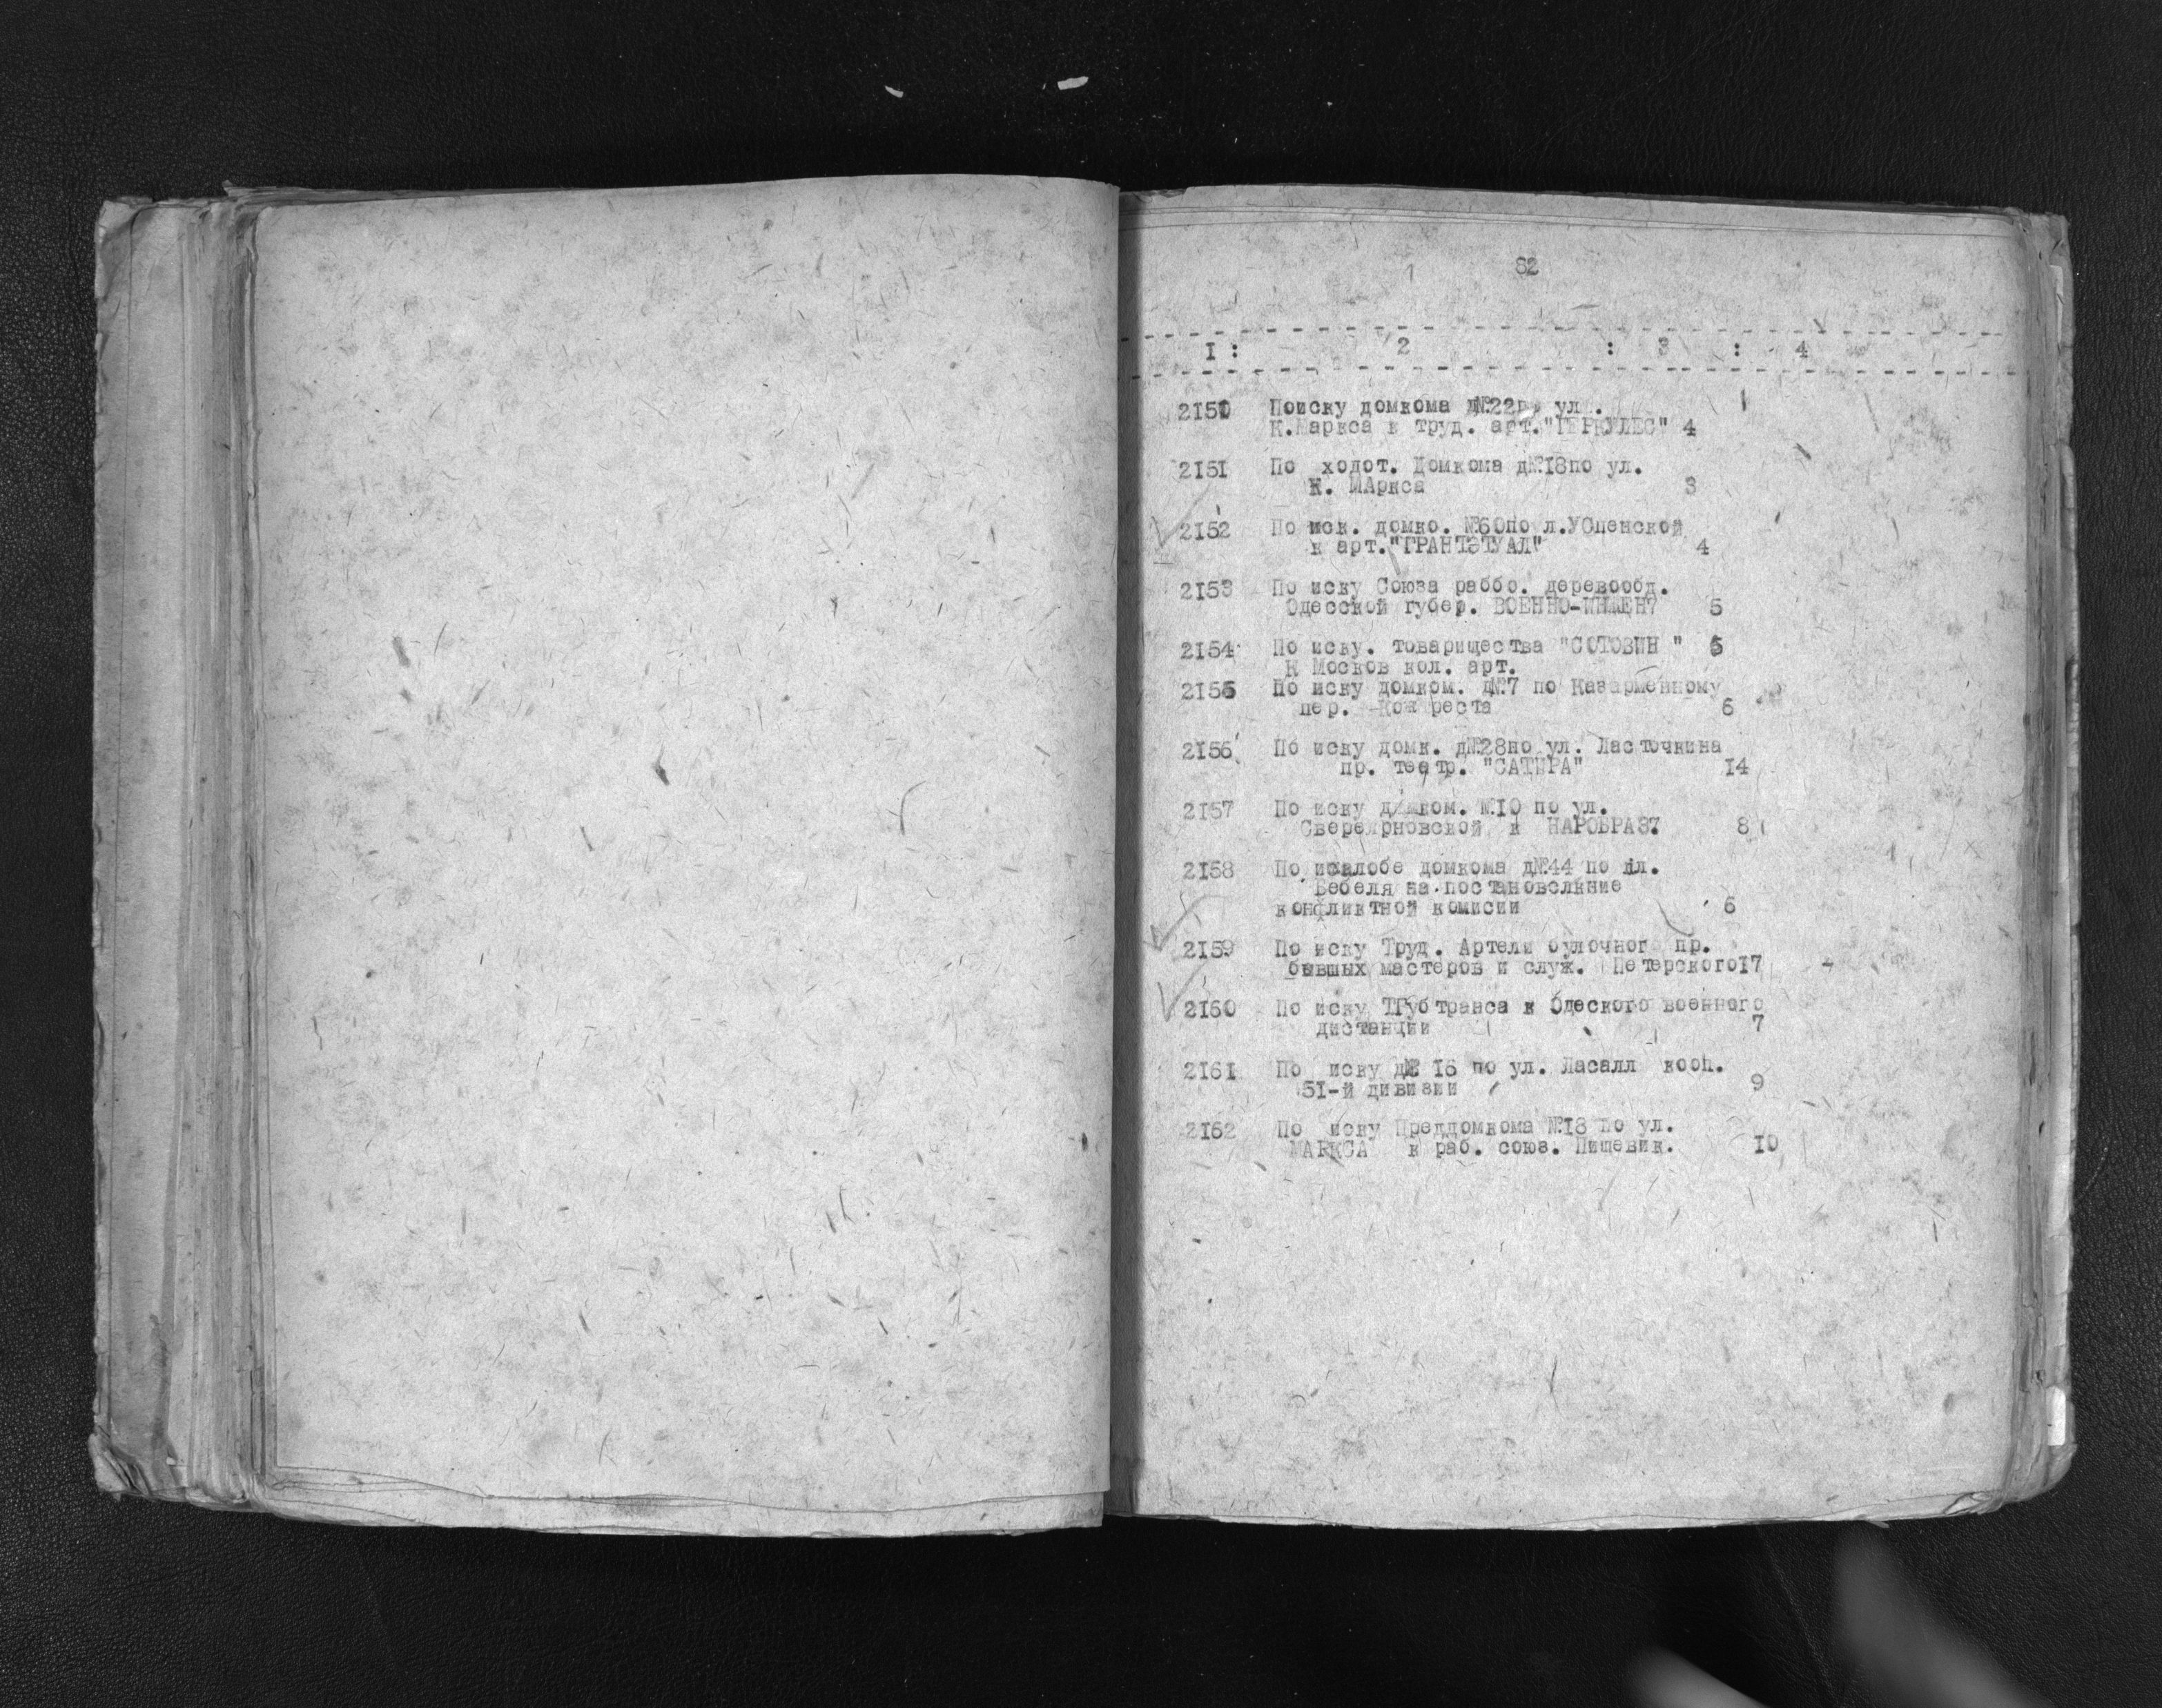 82
I : 2 : 3 : 4
2150 Поиску домкома д№22 ул.
К.Маркса к труд. арт."ГЕРКУЛЕС" 4
2151 По ходот. Домкома д№18по ул.
К. МАркса 3
2152 По иск. домко. №60по л.УСпенской
к арт."ГРАНТЭТУАЛ" 4
2153 По иску Союза раббо. деревообд.
Одесской губер. ВОЕННО-ИНЖЕН? 5
2154 По иску. товарищества "СОТОВИН " 5
К Москов кол. арт.
2155 По иску домком. д№7 по Казарменному
пер. 6
2156 По иску домк. д№28по ул. Ласточкина
пр. театр. "САТИРА" 14
2157 По иску домком. №10 по ул.
к НАРОБРАЗ? 8
2158 По домкома д№44 по
Бебеля на постановслкние
конфликтной комисии 6
2159 По иску Труд. Артели булочног пр.
бывших мастеров и служ. Петерского17
2160 По иску Губтранса к Одеского военного
дистанции 7
2161 По иску д№ 16 по ул. Ласалл кооп.
51-й дивизии 9
2162 По иску Преддомкома №18 по ул.
МАРКСА к раб. союз. Пищевик. 10